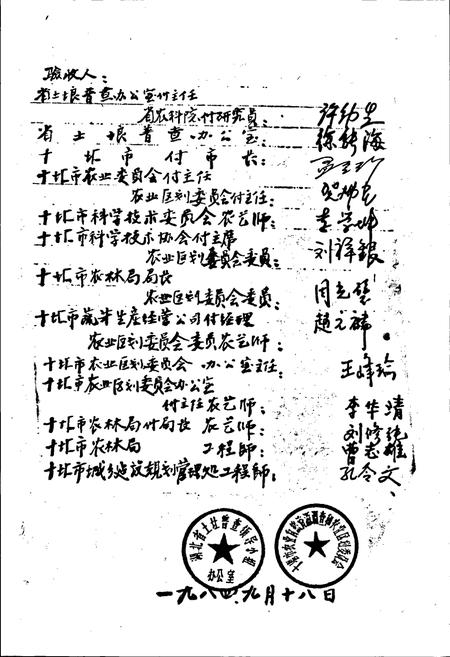 验收人：
省土壤普查办公室付主任
省农科院付研究员：许幼生
省土壤普查办公室：徐 海
十堰市付市长：
十堰市农业委员会付主任
农业区划委员会付主任：
十堰市科学技术委员会农艺师：李学
十堰市科学技术协会付主席
农业区划委员会委员：刘祥银
十堰市农林局局长
农业区划委员会委员：周
十堰市蔬菜生产经营公司付经理
农业区划委员会委员农艺师：赵
十堰市农业区划委员会办公室主任：王峰
十堰市农业区划委员会办公室
付主任农艺师：李华靖
十堰市农林局付局长 农艺师：刘修
十堰市农林局 工程师：曹志雄
十堰市城乡建设规划管理处工程师：孔令文
湖北省土壤普查领导小组
办公室
一九八四、九月十八日